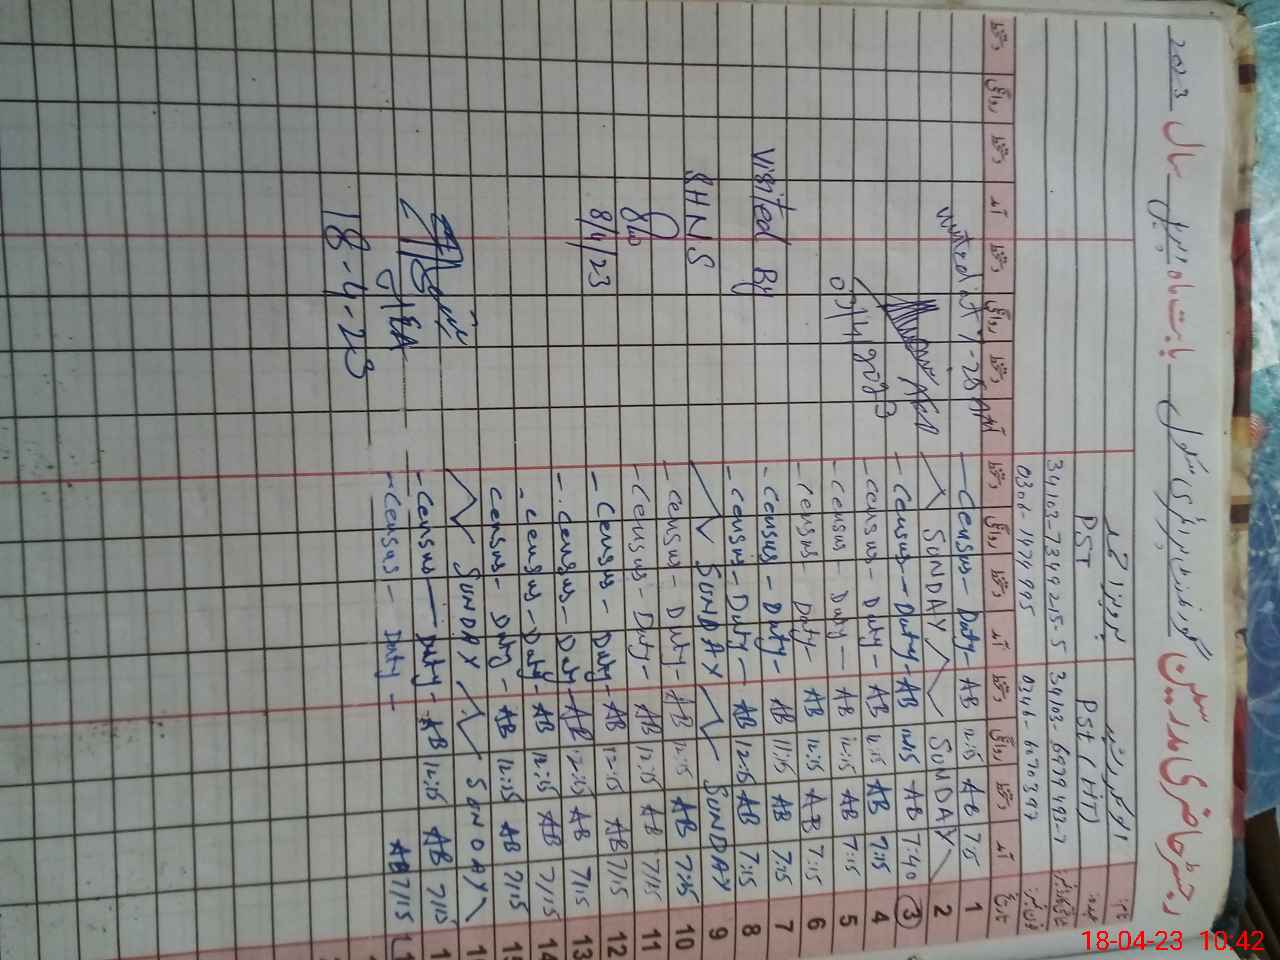 رجسٹر حاضری مدرسین گورنمنٹ پرائمری سکول بابت ماہ اپریل سال 2023
نام
عہدہ
PST (HT) PST
شناختی کارڈ نمبر 34103-7349215-5
فون نمبر 0346-6270397 0306-1474995
تاریخ آمد دستخط روانگی دستخط آمد دستخط روانگی دستخط آمد دستخط روانگی دستخط آمد دستخط روانگی دستخط
1 7:15 AB 12:15 AB - Census - Duty -
2 SUNDAY SUNDAY
3 7:40 AB 12:15 AB - Census - Duty -
4 7:15 AB 12:15 AB - Census - Duty -
5 7:15 AB 12:15 AB - Census - Duty -
6 7:15 AB 12:15 AB - Census - Duty -
7 7:15 AB 11:15 AB - Census - Duty -
8 7:15 AB 12:15 AB - Census - Duty -
9 SUNDAY SUNDAY
10 7:15 AB 12:15 AB - Census - Duty -
11 7/15 AB 12:15 AB - Census - Duty -
12 7/15 AB 12:15 AB - Census - Duty -
13 7/15 AB 12:15 AB - Census - Duty -
14 7/15 AB 12:15 AB - Census - Duty -
15 7/15 AB 12:15 AB Census - Duty -
SUNDAY SUNDAY
7/15 AB 12:15 AB - Census - Duty -
7/15 AB - Census - Duty -
AEO
Visited By
SHNS
8/4/23
18-4-23
18-04-23 10:42